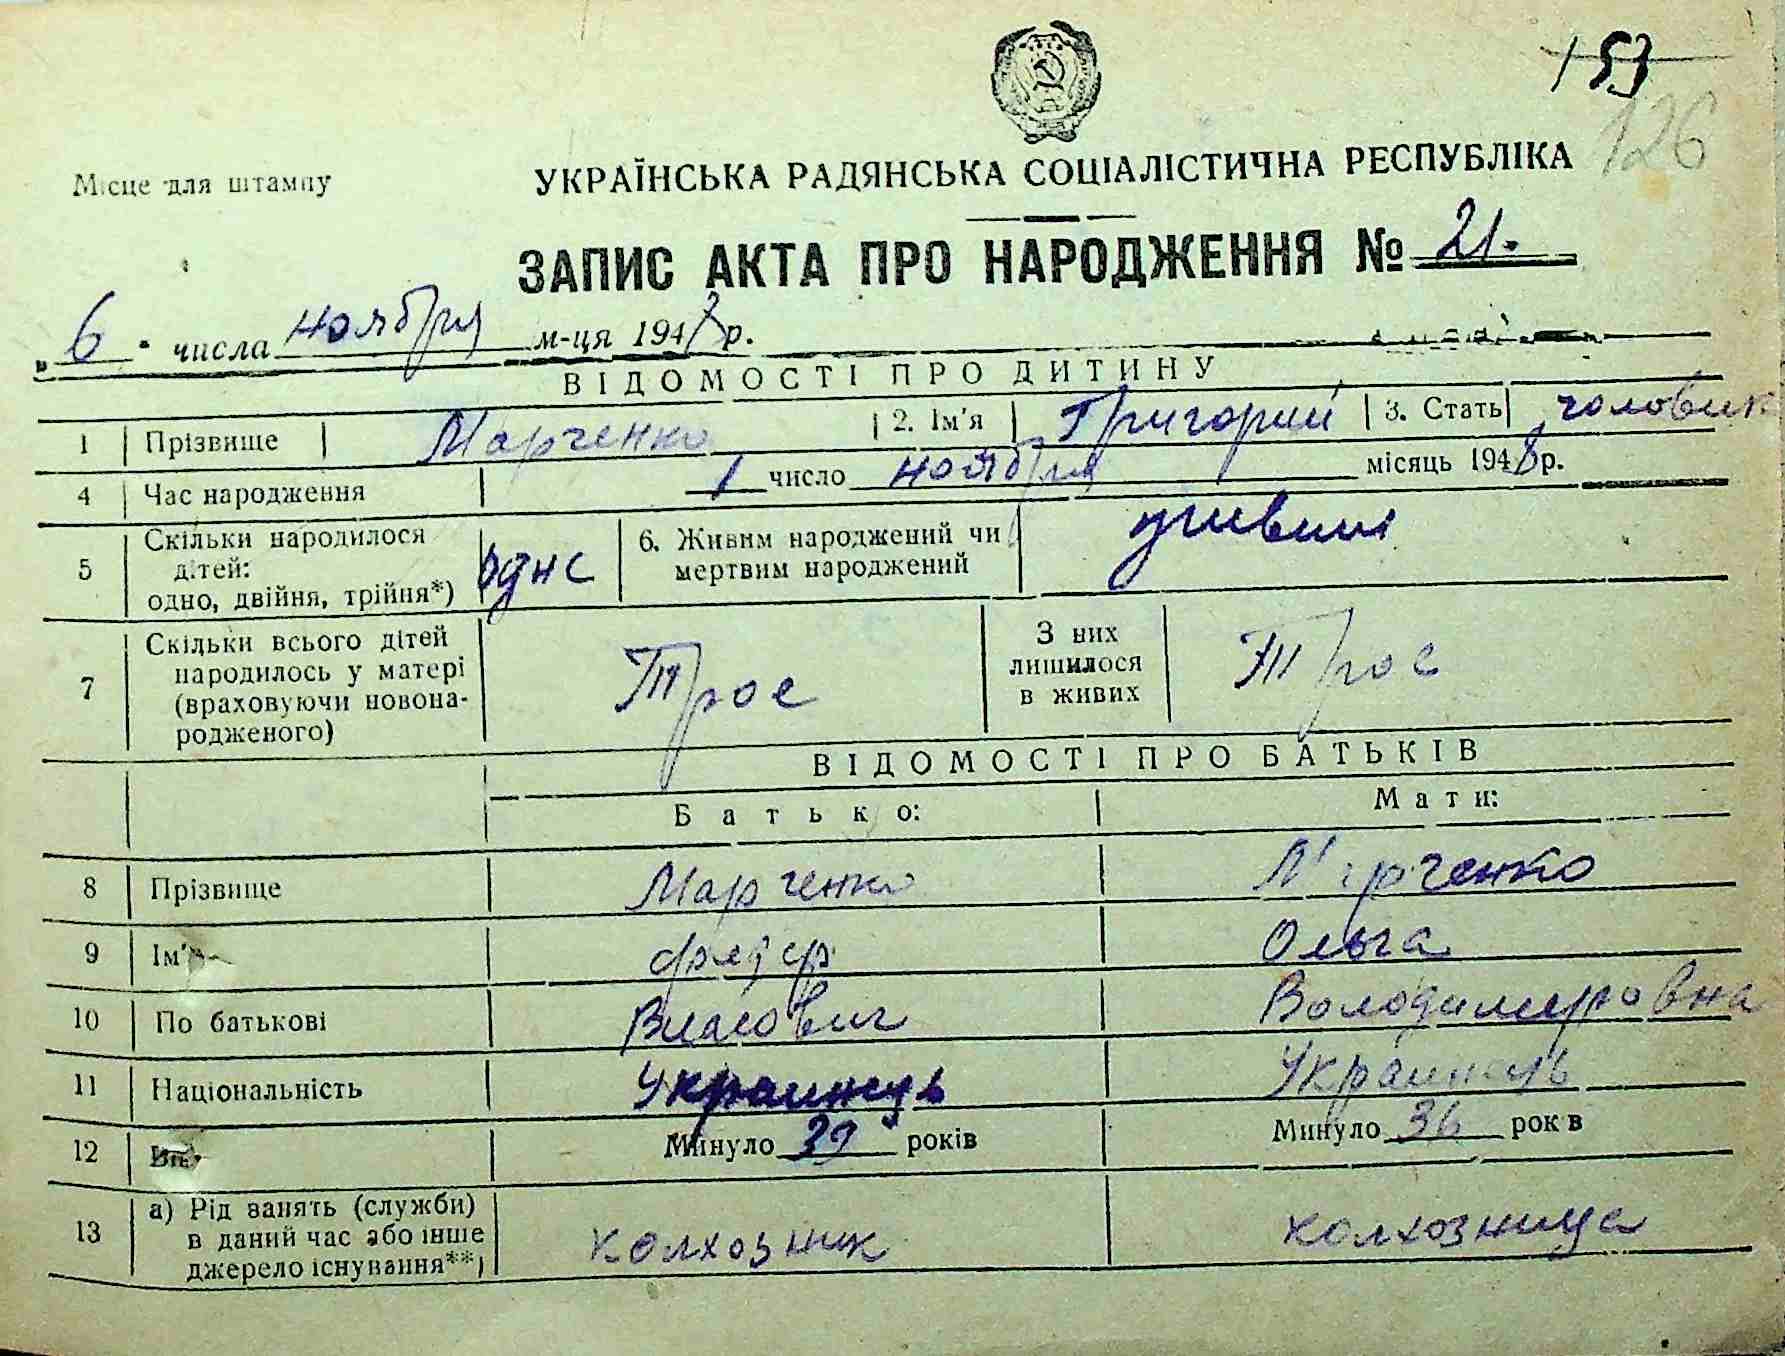 153
126
Місце для штампу
УКРАЇНСЬКА РАДЯНСЬКА СОЦІАЛІСТИЧНА РЕСПУБЛІКА
ЗАПИС АКТА ПРО НАРОДЖЕННЯ № 21.
„ 6 " числа ноября м-ця 1948 р.
ВІДОМОСТІ ПРО ДИТИНУ
1 Прізвище Марченко 2. Ім'я Григорий 3. Стать чоловик
4 Час народження 1 число ноября місяць 1948 р.
5 Скільки народилося дітей: одно, двійня, трійня*) одне 6. Живим народжений чи мертвим народжений
7 Скільки всього дітей народилось у матері (враховуючи новонародженого) Трое З них лишилося в живих Трое
ВІДОМОСТІ ПРО БАТЬКІВ
Батько: Мати:
8 Прізвище Марченко Марченко
9 Ім'я Ольга
10 По батькові Власович Володимировна
11 Національність Украинець Украинець
12 Минуло 39 років Минуло 36 років
13 а) Рід занять (служби) в даний час або інше джерело існування**) колхозник колхозница